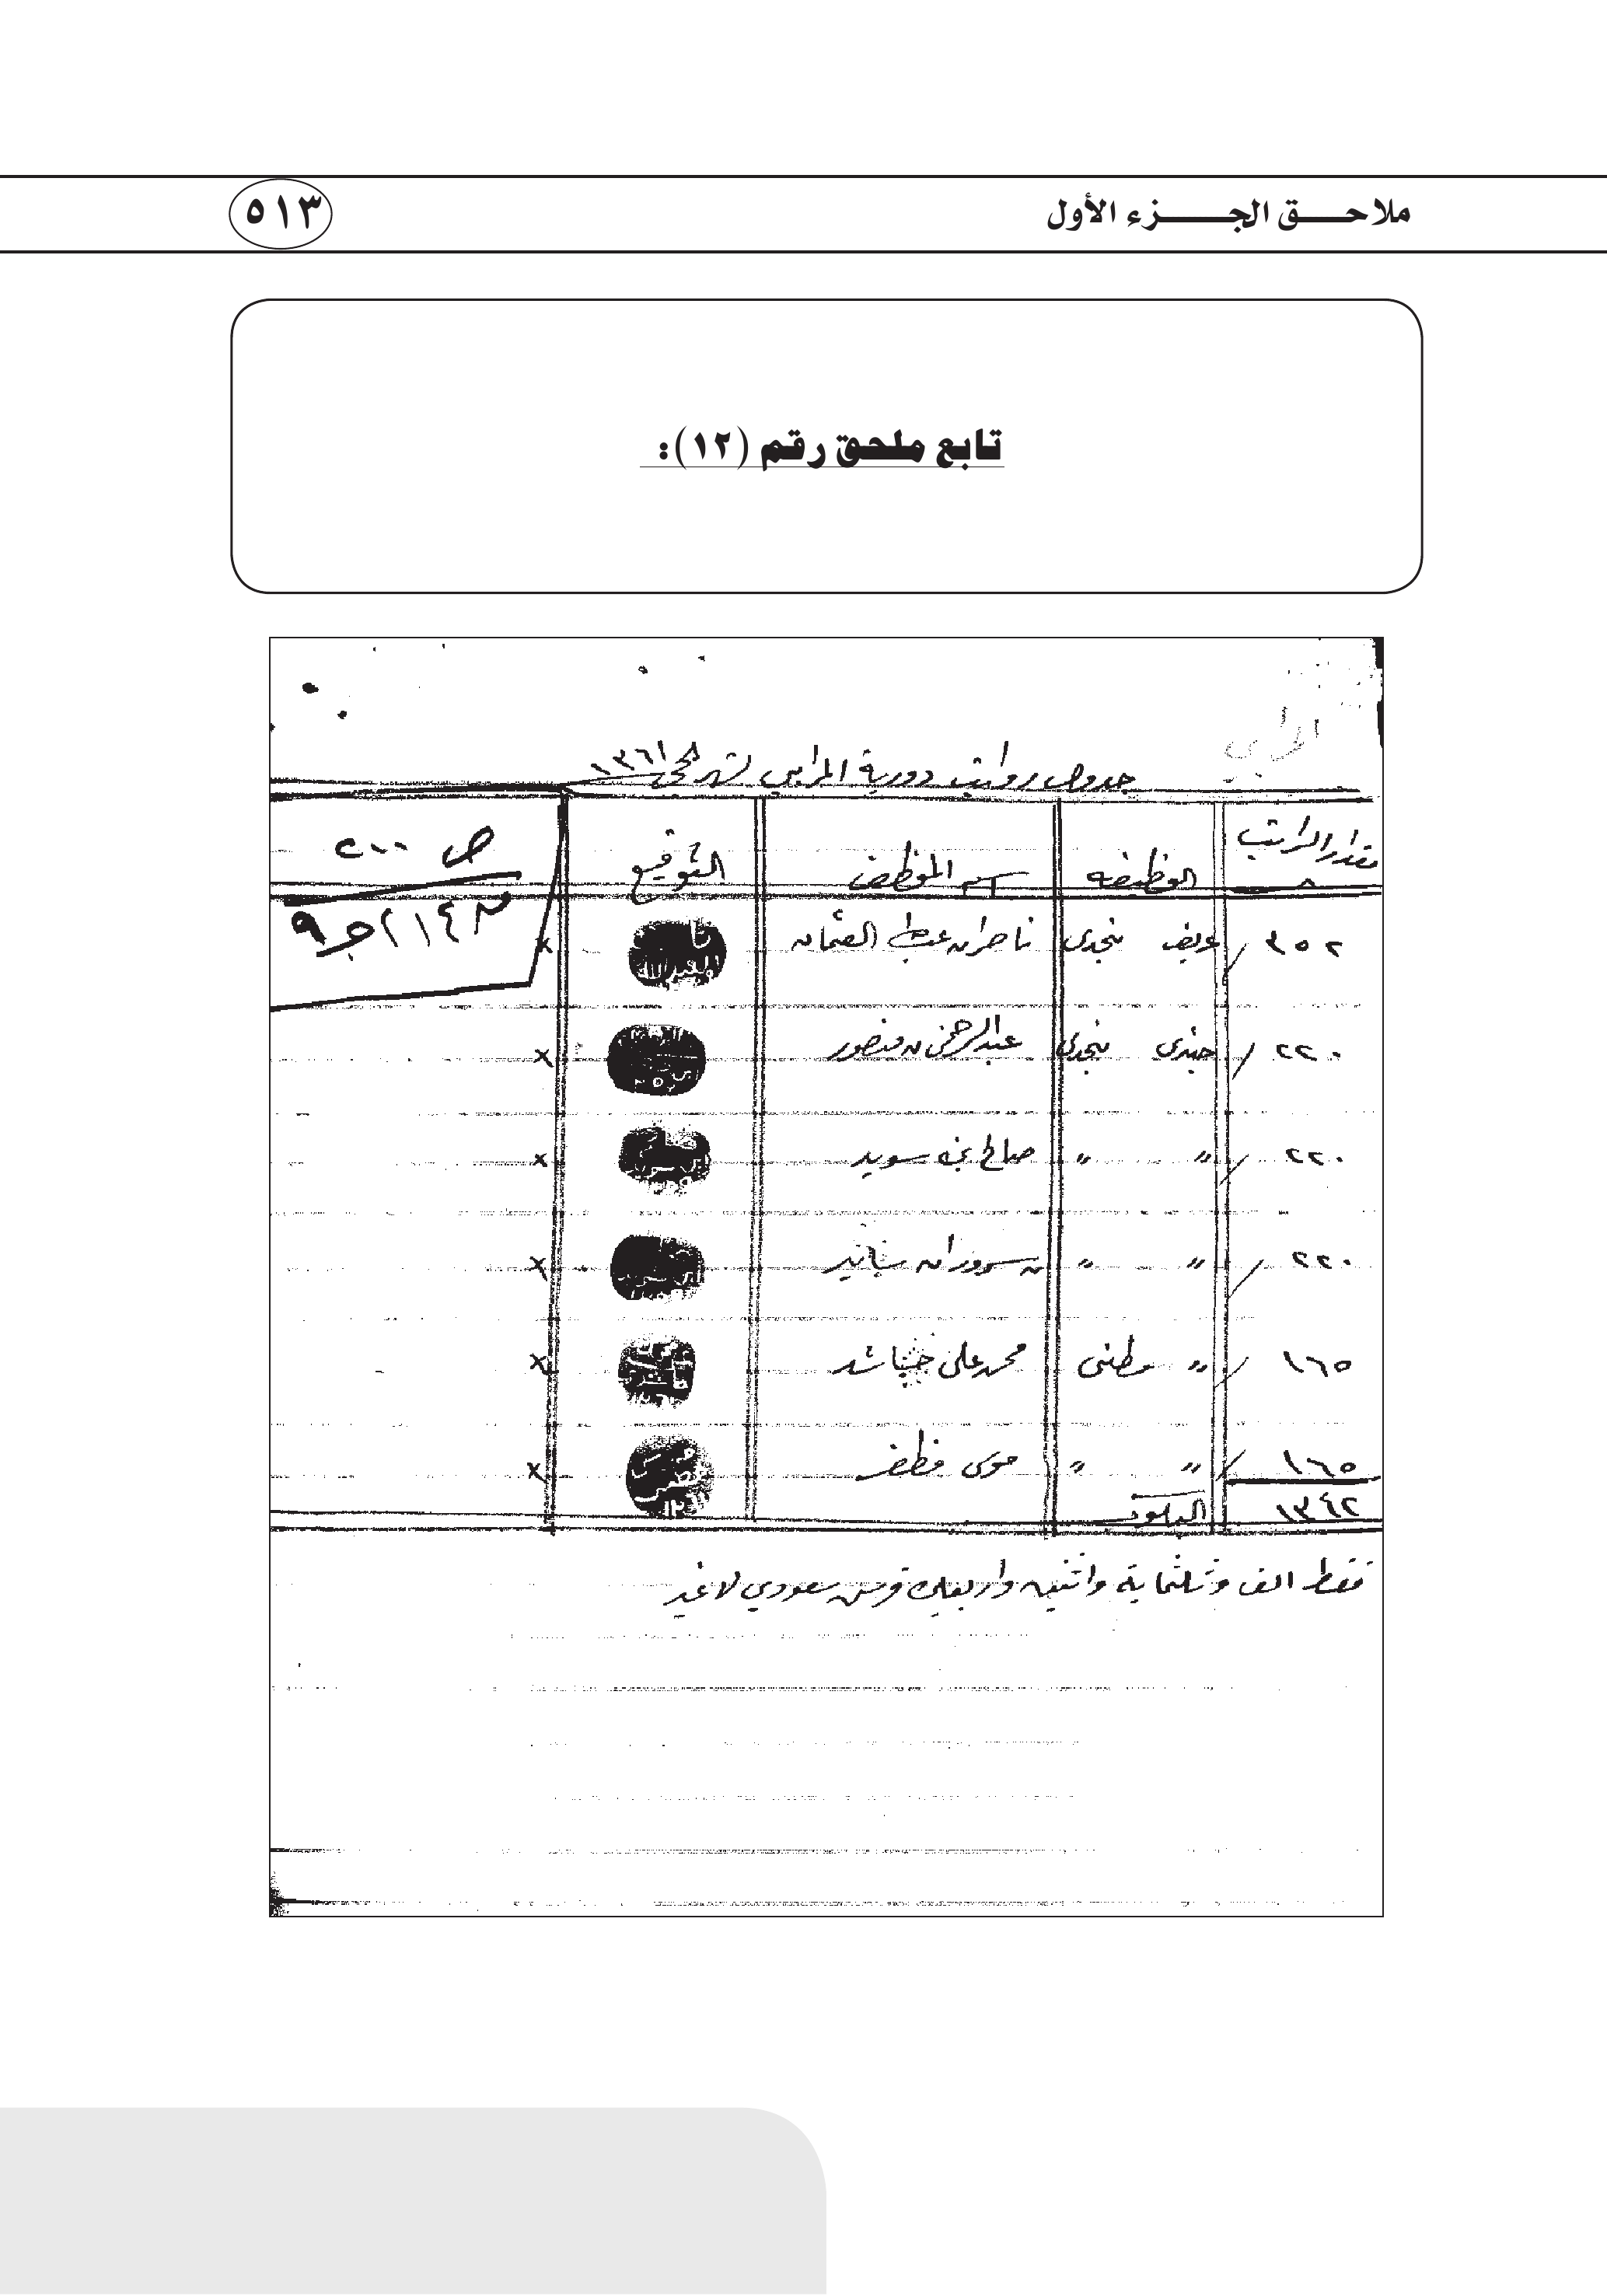 ملاحق الجزء الأول
٥١٣
تابع ملحق رقم (١٢):
المرابي
جدول رواتب دورية المرابي لشهر محرم ١٣٦١
مقدار الراتب الوظيفه اسم الموظف التوقيع
ص ٢٠٠
٣٥٢ عريف نجدي ناصر ابن عبد العثمان ×
٢٢٠ جندي نجدي عبدالرحمن بن منصور ×
٢٢٠ " " صالح بن سويد ×
٢٢٠ " " سرور ابن ×
١٦٥ " وطني محمد علي ×
١٦٥ " " موسى مظفر ×
١٣٤٢
فقط الف وثلثماية واثنين واربعين قرش سعودي لاغير